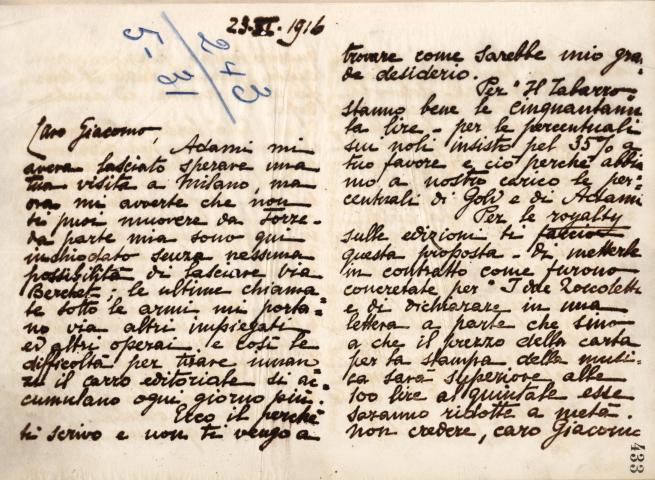 23.XI.1916
243
5-31
Caro Giacomo,
Adami mi
aveva lasciato sperare una
tua visita a Milano, ma
ora mi avverte che non
ti puoi muovere da Torre-
da parte mia sono qui
inchiodato senza nessuna
possibilità di lasciare via
Berchet; le ultime chiama=
te sotto le armi mi porta=
no via altri impiegati
ed altri operai e così le
difficoltà per tirare innan=
zi il carro editoriale si ac=
cumulano ogni giorno più.
Ecco il perchè
ti scrivo e non ti vengo a
trovare come sarebbe mio gran
de desiderio.
Per "Il Tabarro"
stanno bene le cinquantami
la lire - per le percentuali
sui noli insisto pel 35% a
tuo favore e ciò perchè abbia
mo a nostro carico le per=
centuali di Gold e di Adami
Per le royalty
sulle edizioni ti faccio
questa proposta - di metterle
in contratto come furono
concretate per "I due Zoccoletti
e di dichiarare in una
lettera a parte che sino
a che il prezzo della carta
per la stampa della musi=
ca sarà superiore alle
100 lire al quintale esse
saranno ridotte a metà.
Non credere, caro Giacomo
433